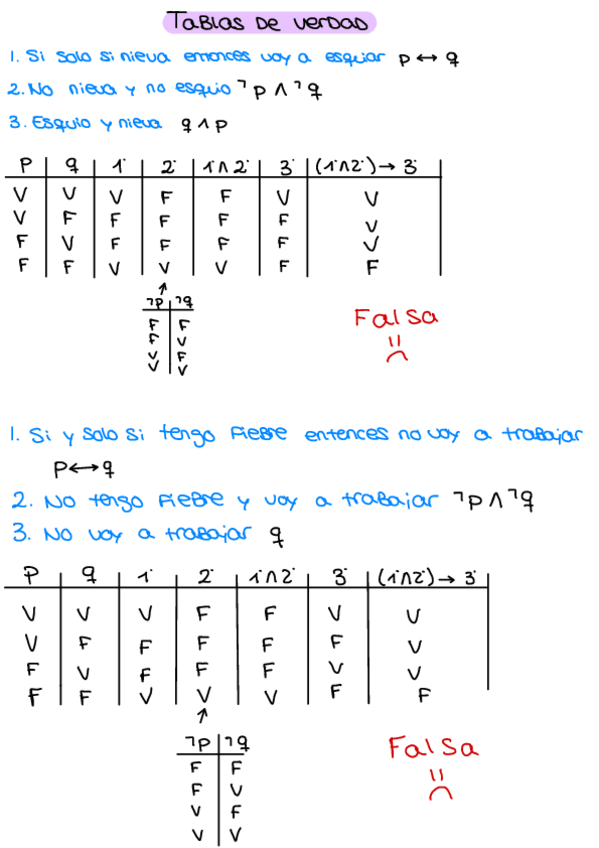 Tablas de verdad
1. Si solo si nieva entonces voy a esquiar p ↔ q
2. No nieva y no esquio ¬p ∧ ¬q
3. Esquio y nieva q ∧ p
p | q | 1· | 2· | 1·∧2· | 3· | (1·∧2·) → 3·
V | V | V | F | F | V | V
V | F | F | F | F | F | V
F | V | F | F | F | F | V
F | F | V | V | V | F | F
↑
¬p | ¬q
F | F
F | V
V | F
V | V
Falsa
1. Si y solo si tengo fiebre entences no voy a trabajar
p ↔ q
2. No tengo fiebre y voy a trabajar ¬p ∧ ¬q
3. No voy a trabajar q
p | q | 1· | 2· | 1·∧2· | 3· | (1·∧2·) → 3·
V | V | V | F | F | V | V
V | F | F | F | F | F | V
F | V | F | F | F | V | V
F | F | V | V | V | F | F
↑
¬p | ¬q
F | F
F | V
V | F
V | V
Falsa